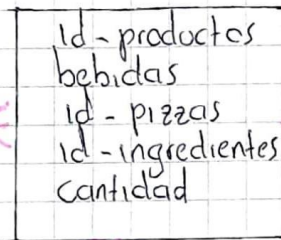 id-productos
bebidas
id-pizzas
id-ingredientes
cantidad